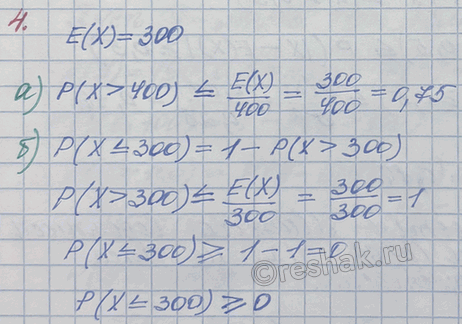 4.
E(X)=300
а) P(X>400) ≤ E(X)/400 = 300/400 = 0,75
б) P(X≤300)=1-P(X>300)
P(X>300)≤ E(X)/300 = 300/300 = 1
P(X≤300)≥ 1-1=0
©reshak.ru
P(X≤300)≥0